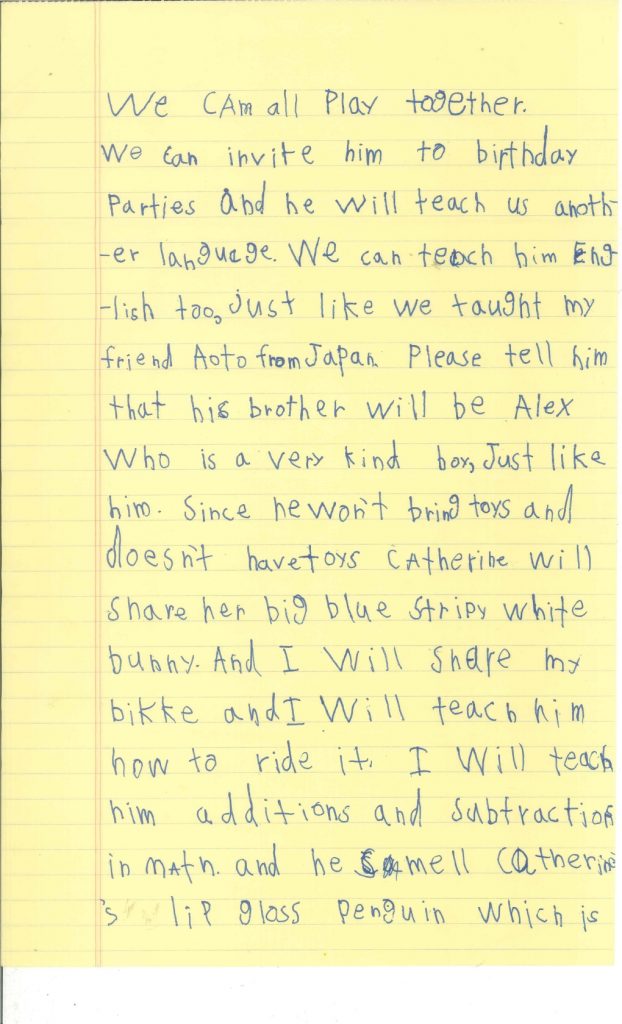 We CAm all Play together.
We can invite him to birthday
Parties And he will teach us anoth-
-er language. We can teach him Eng
-lish too, Just like we taught my
friend Aoto from Japan. Please tell him
that his brother will be Alex
Who is a very kind boy, Just like
him. Since he won't bring toys and
doesn't have toys CAtherine will
Share her big blue Stripy white
bunny. And I Will Share my
bikke and I Will teach him
how to ride it. I Will teach
him additions and Subtraction
in mAth. and he smell CAtherine
's lip gloss Penguin which is